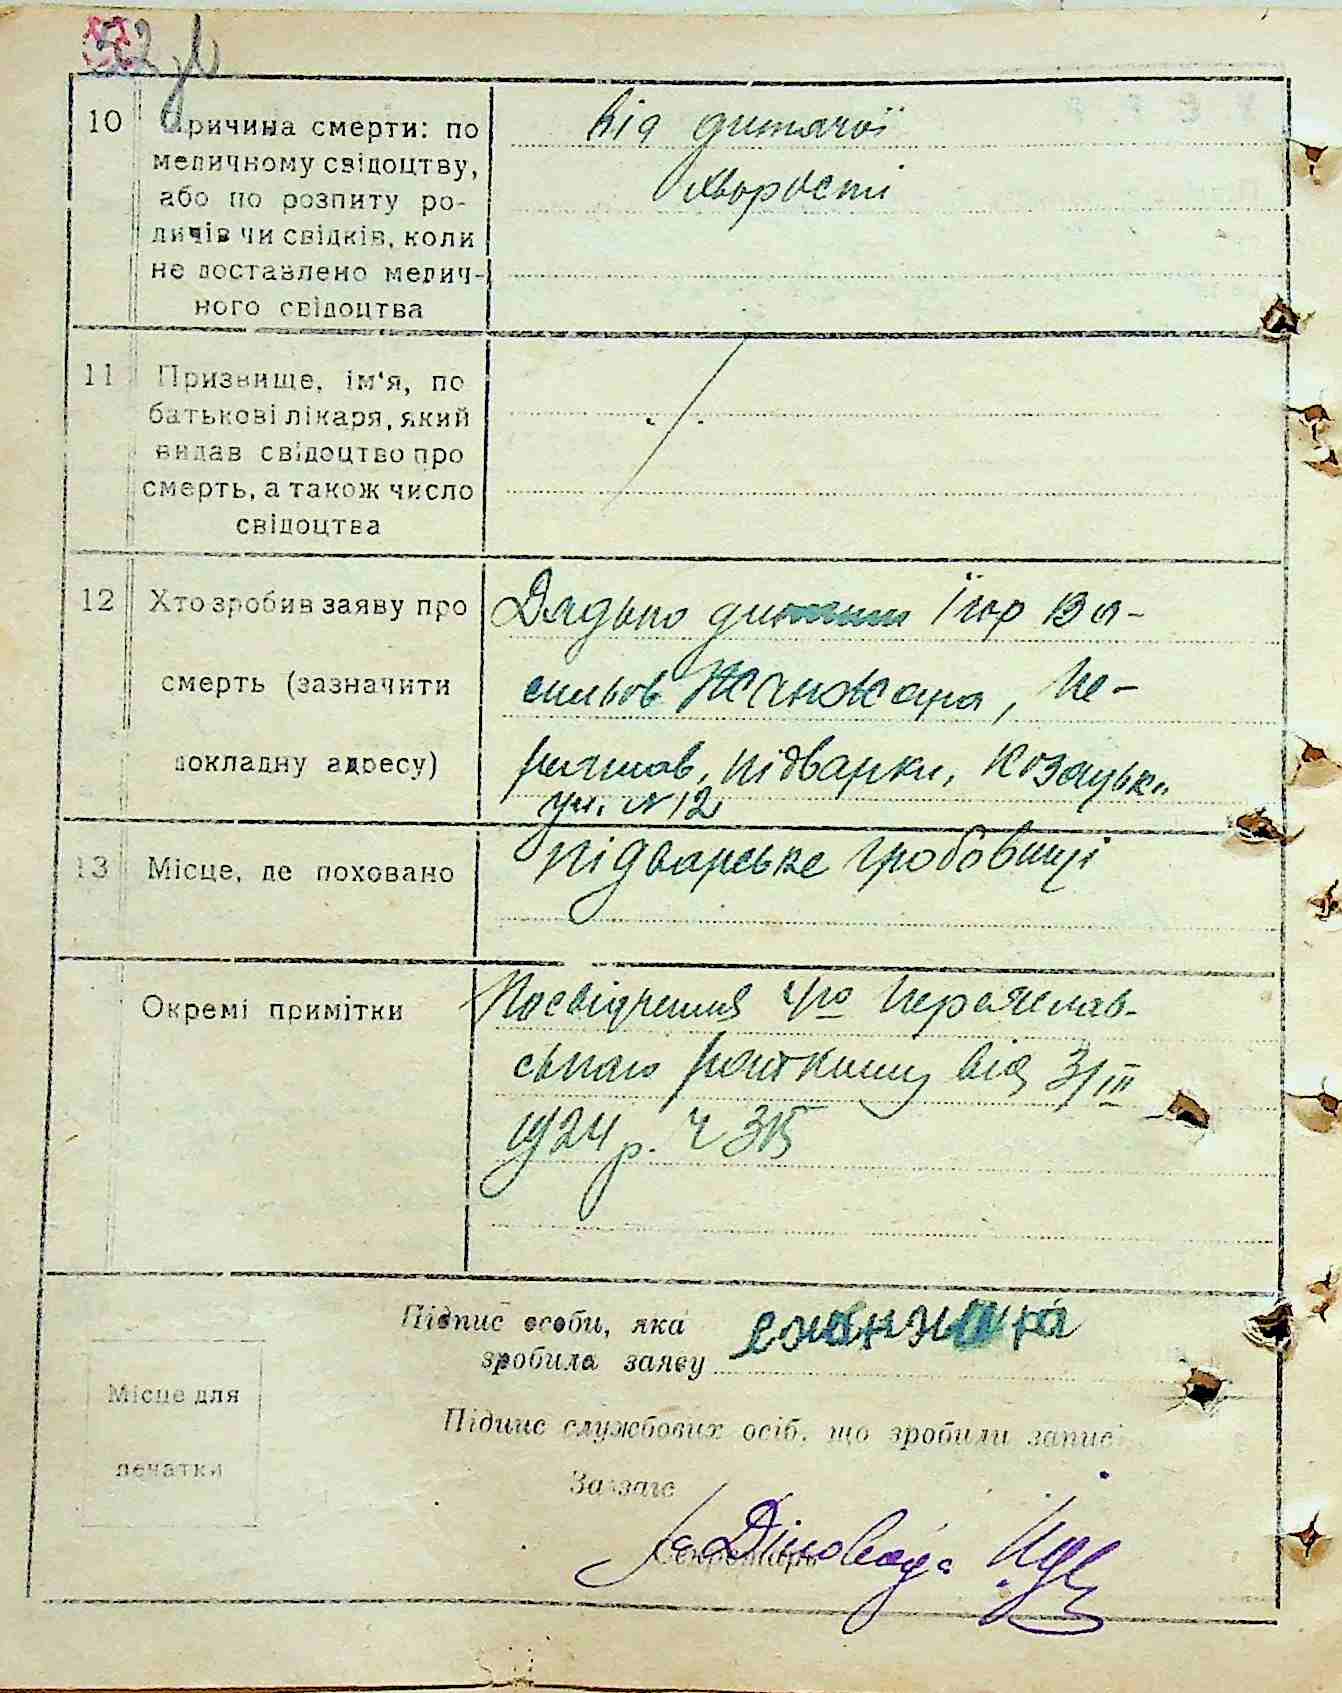 10
Причина смерти: по
медичному свідоцтву,
або по розпиту ро-
дичів чи свідків, коли
не доставлено медич-
ного свідоцтва
від дитячої
хворости
11
Призвище, ім'я, по
батькові лікаря, який
видав свідоцтво про
смерть, а також число
свідоцтва
12
Хто зробив заяву про
смерть (зазначити
докладну адресу)
Дядько дитини Ігор Ва-
сильов, Пе-
реяслав, підварки, Козацька
ул. № 12
13
Місце, де поховано
підварське гробовищі
Окремі примітки
Посвідчення Переяслав-
ського від 3/III
1924 р. Ч 315
Підпис особи, яка
зробила заяву
Місце для
печатки
Підпис службових осіб, що зробили запис:
Завзагс
Секретарь